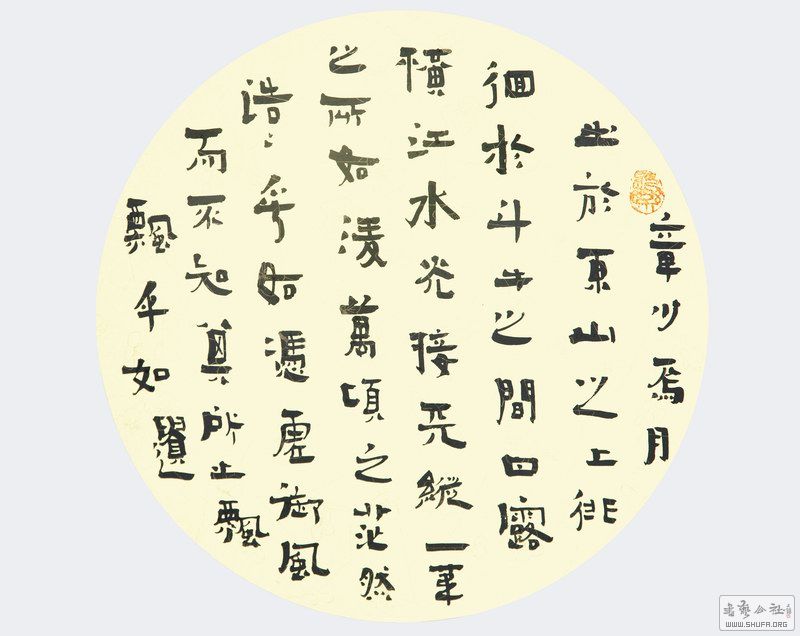 章少焉月
出於東山之上徘
徊於斗牛之間白露
横江水光接天縱一葦
之所如淩萬頃之茫然
浩〻乎如憑虛御風
而不知其所止飄
飄乎如遺
WWW.SHUFA.ORG